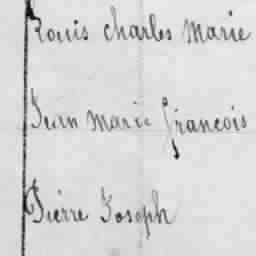 Louis charles marie
Jean marie françois
Pierre Joseph